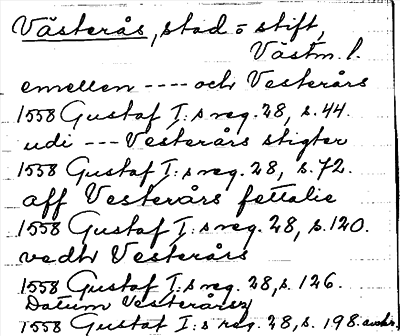 Västerås, stad o stift,
Västm. l.
emellen ---- och Vesterårs
1558 Gustaf I:s reg. 28, s. 44.
udi --- Vesterårs stigter
1558 Gustaf I:s reg. 28, s. 72.
aff Vesterårs fettalie
1558 Gustaf I:s reg. 28, s. 120.
vedh Vesterårs
1558 Gustaf I:s reg. 28, s. 126.
Datum Vesterårsz
1558 Gustaf I:s reg. 28, s. 198. avskr.